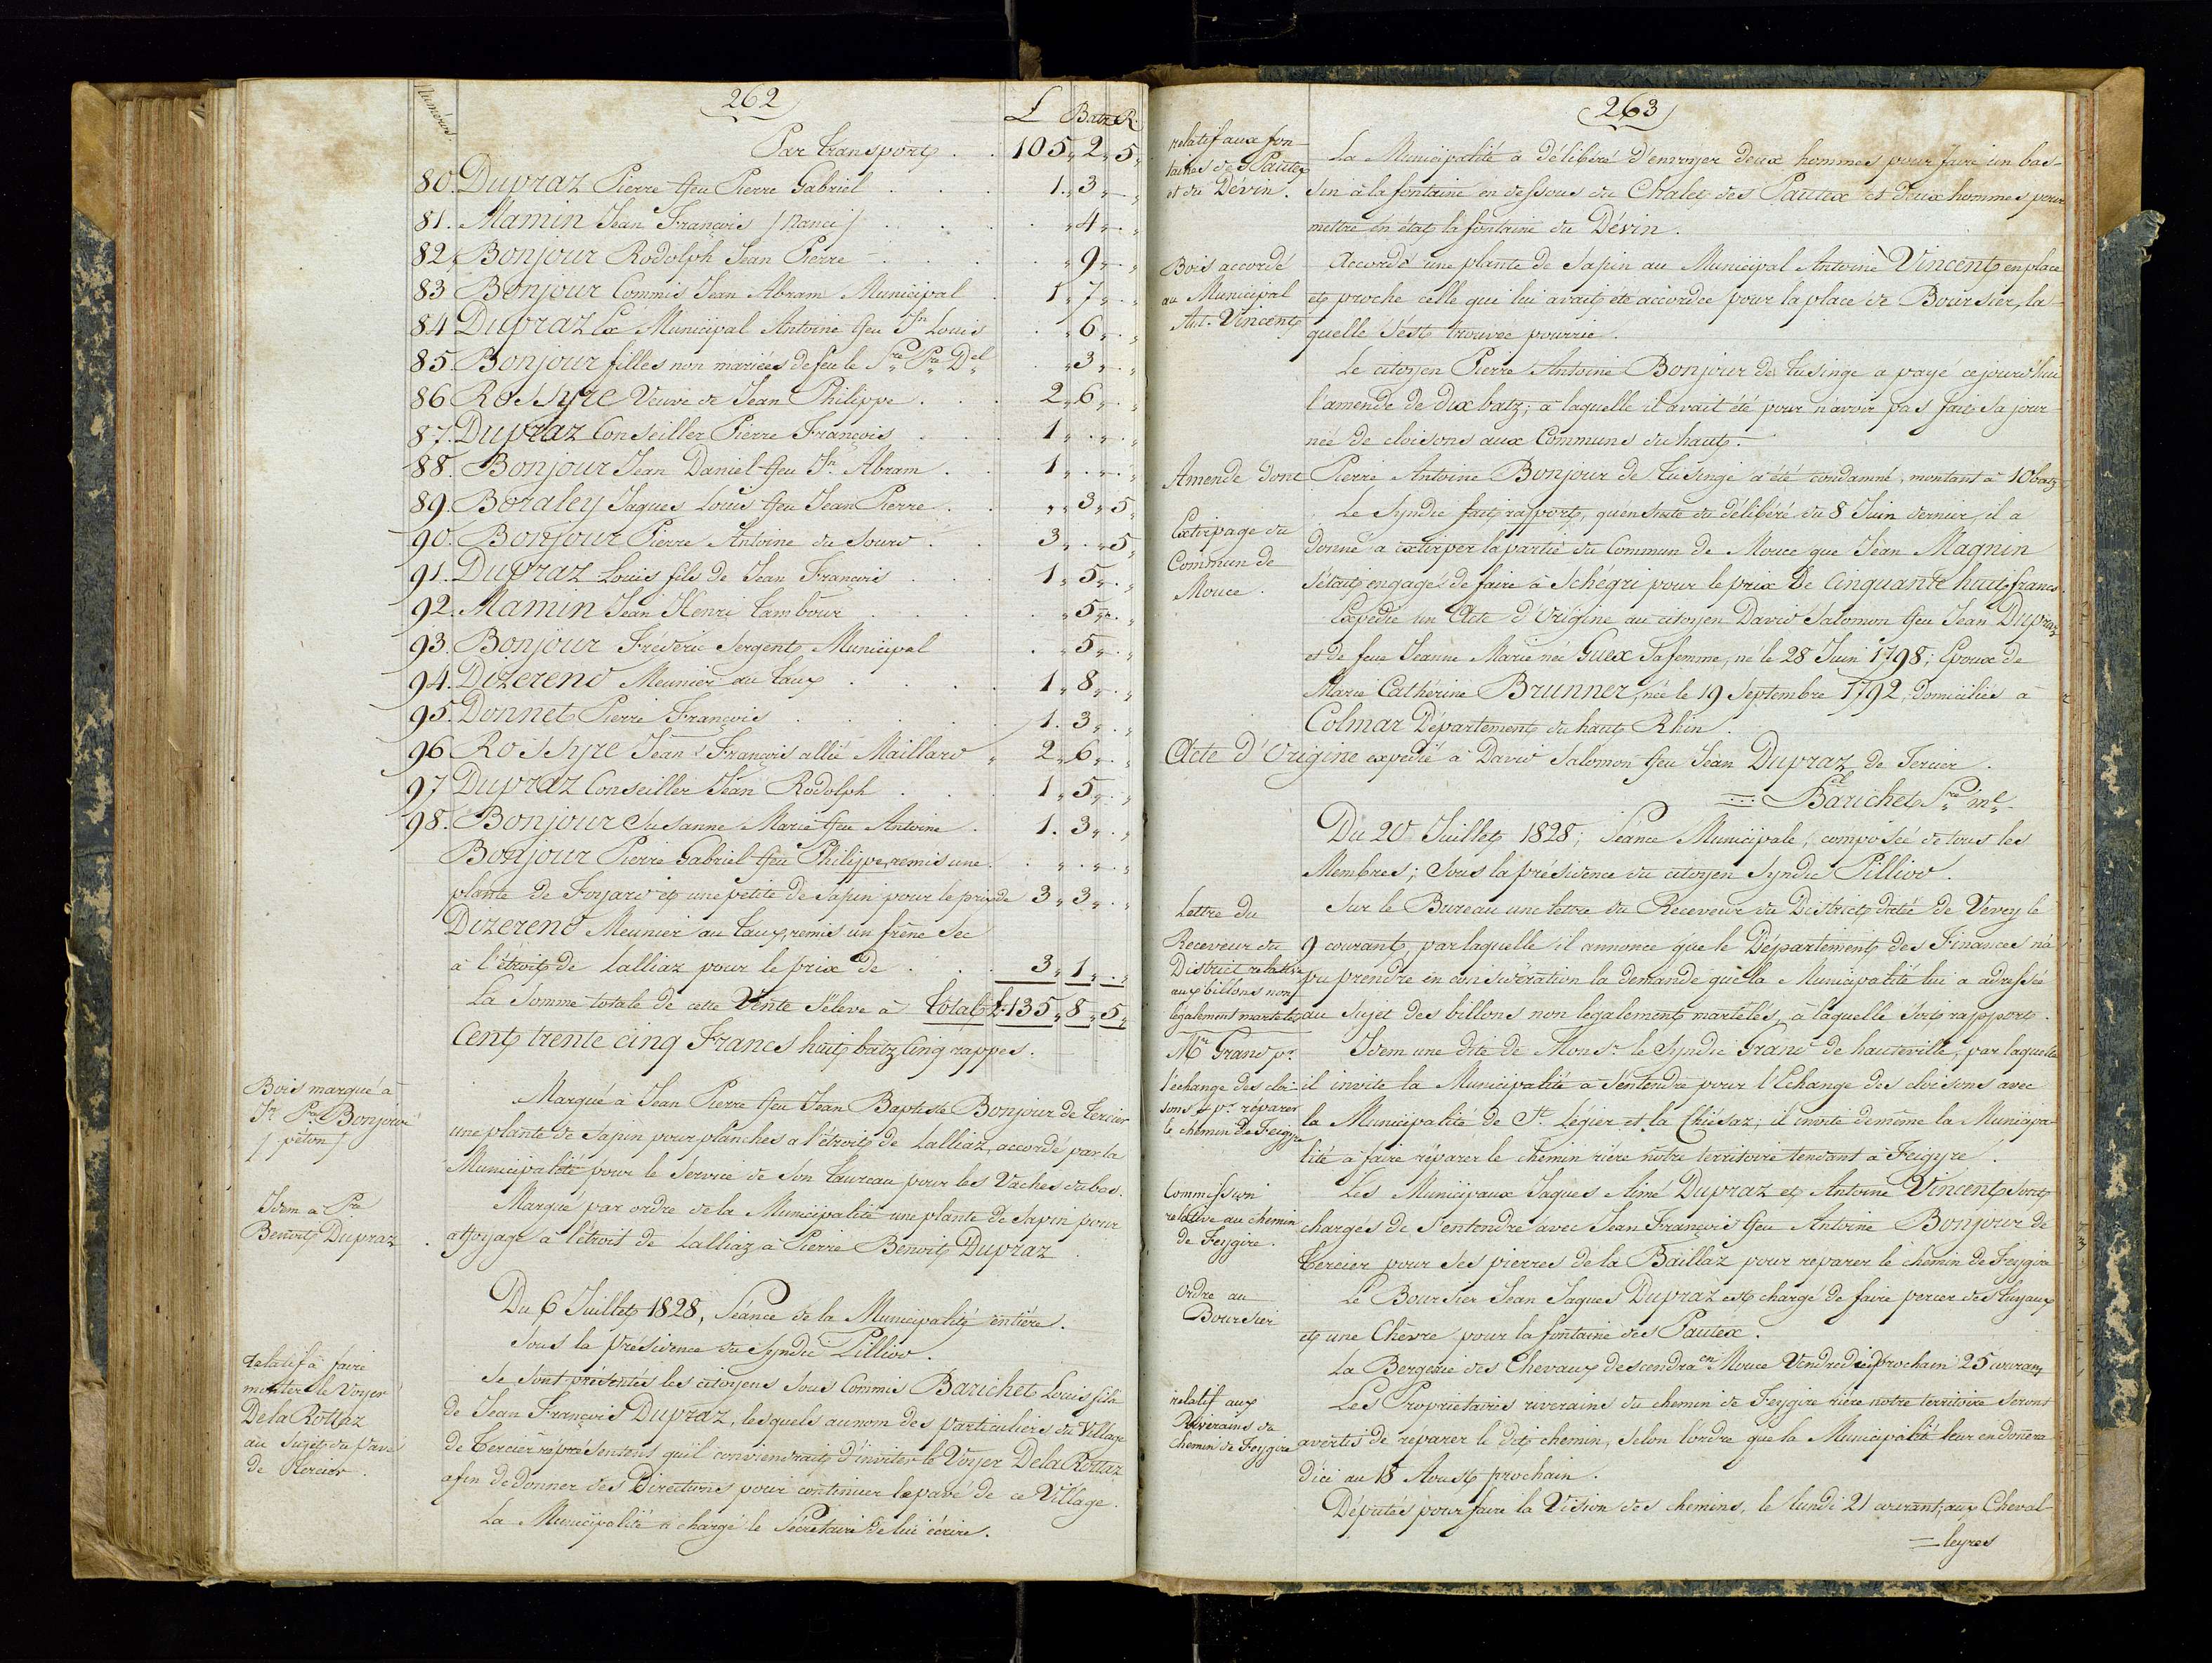 262
Numéros
£ Batz R.
Par transport . . 105 " 2 " 5 "
80. Dupraz Pierre ffeu Pierre Gabriel . . . 1 " 3 " . "
81. Mamin Jean François / Nanci / . . . . " 4 " . "
82. Bonjour Rodolph Jean Pierre . . . . " 9 " . "
83 Bonjour Commis Jean Abram Municipal . 1 " 7 " . "
84 Dupraz Ex Municipal Antoine ffeu Jn Louis . " 6 " . "
85 Bonjour filles non mariées de feu le Sre Pre Del . " 3 " . "
86 Rossyre Veuve de Jean Philippe . . . 2 " 6 " . "
87. Dupraz Conseiller Pierre François . . . 1 " . " . "
88. Bonjour Jean Daniel ffeu Jn Abram . . 1 " . " . "
89. Boraley Jaques Louis ffeu Jean Pierre . . " " 3 " 5 "
90. Bonjour Pierre Antoine du Sourd . . . 3 " . " 5 "
91. Dupraz Louis fils de Jean François . . . 1 " 5 " . "
92. Mamin Jean Henri tambour . . . . " 5 " . "
93. Bonjour Fréderic Sergent Municipal . " 5 " . "
94. Dizerend Meunier au taux . . . . 1 " 8 " . "
95. Donnet Pierre François . . . . . 1 . 3 " . "
96 Rossyre Jean François allié Maillard " 2 " 6 " . "
97 Dupraz Conseiller Jean Rodolph . . . 1 " 5 " . "
98. Bonjour Susanne Marie ffeu Antoine . 1 . 3 " . "
Bonjour Pierre Gabriel ffeu Philippe, remis une . . " . " . "
plante de Foyard et une petite de Sapin pour le prix de 3 " 3 " . "
Dizerend Meunier au taux, remis un frêne Sec
à l'étroit de Lalliaz pour le prix de . . . 3 " 1 " . "
La Somme totale de cette Vente s'éleve à total £ 135 " 8 " 5 "
Cent trente cinq Francs huit batz Cinq rappes.
Bois marqué à
Jn Pre Bonjour
/ péton /
Marqué à Jean Pierre ffeu Jean Baptiste Bonjour de Tercier
une plante de Sapin pour planches a l'étroit de Lalliaz, accordé par la
Municipalité pour le Service de Son taureau pour les Vaches du bas.
Idem à Pre
Benoit Dupraz
Marqué par ordre de la Municipalité une plante de Sapin pour
affoyage à l'étroit de Lalliaz à Pierre Benoit Dupraz
Du 6 Juillet 1828, Séance de la Municipalité entière.
Sous la présidence du Syndic Pilliod.
relatif à faire
monter le Voyer
De la Rottaz
au Sujet du pavé
de Tercier.
Se Sont présentés les citoyens Sous Commis Barichet Louis fils
de Jean François Dupraz, lesquels au nom des particuliers du Village
de Tercier représentent qu'il conviendrait d'inviter le Voyer De la Rottaz
afin de donner des Directions pour continuer le pavé de ce Village.
La Municipalité à chargé le Sécretaire de lui écrire.
263
relatif aux fon-
taines des Pautex
et du Dévin.
La Municipalité à délibéré d'envoyer deux hommes pour faire un bas-
sin à la fontaine en dessous du Chalet des Pautex et deux hommes pour
mettre en état la fontaine du Dévin.
Bois accordé
au Municipal
Ant. Vincent
Accordé une plante de Sapin au Municipal Antoine Vincent en place
et proche celle qui lui avait été accordée pour la place de Boursier, la-
quelle s'est trouvée pourrie.
Le citoyen Pierre Antoine Bonjour de Tusinge a payé ce jourd'hui
l'amende de dix batz; à laquelle il avait été pour n'avoir pas fait Sa jour-
née de cloisons aux Communs du haut.
Amende dont Pierre Antoine Bonjour de Tusinge a été condamné, montant à 10 batz
Extirpage du
Commun de
Mouce.
Le Syndic fait rapport, qu'en Suite du délibéré du 8 Juin dernier, il a
donné à extirper la partie du Commun de Mouce que Jean Magnin
s'était engagé de faire à Schégri pour le prix de Cinquante huit francs.
Expédié un Acte d'Origine au citoyen David Salomon ffeu Jean Dupraz
et de feue Jeanne Marie née Guex Sa femme, né le 28 Juin 1798; Epoux de
Marie Cathérine Brunner, née le 19 Septembre 1792, Domiciliés à
Colmar Département du haut Rhin.
Acte d'Origine expédié à David Salomon ffeu Jean Dupraz de Tercier.
Barichet Sre ml.
Du 20 Juillet 1828; Séance Municipale, composée de tous les
Membres; Sous la présidence du citoyen Syndic Pilliod.
Lettre du
Receveur du
District relative
aux billons non
légalement martelés
Sur le Bureau une lettre du Receveur du District datée de Vevey le
9 courant, par laquelle il annonce que le Département des Finances n'a
pu prendre en considération la demande que la Municipalité lui a adressée
au Sujet des billons non légalement martelés, à laquelle Soit rapport.
Mr Grand pr.
l'échange des cloi-
sons & pr. réparer
le chemin de Feigyre
Idem une dite de Monsr. le Syndic Grand de hauteville, par laquelle
il invite la Municipalité à s'entendre pour l'Echange des cloisons avec
la Municipalité de St. Légier et la Chiésaz; il invite de même la Municipa-
lité à faire réparer le chemin rière nôtre territoire tendant à Feigyre.
Commission
relative au chemin
de Feygire.
Les Municipaux Jaques Aimé Dupraz et Antoine Vincent Sont
chargés de s'entendre avec Jean François ffeu Antoine Bonjour de
Tercier pour Ses pierres de la Baillaz pour réparer le chemin de Feygire
Ordre au
Boursier
Le Boursier Jean Jaques Dupraz est chargé de faire percer des tuyaux
et une Chèvre pour la fontaine des Pautex.
La Bergerie des Chevaux descendra en Mouce Vendredi prochain 25 courant
relatif aux
Riverains du
Chemin de Feygire
Les Propriétaires riverains du chemin de Feygire rière notre territoire Seront
avertis de réparer le dit chemin, Selon l'ordre que la Municipalité leur en donnera
d'ici au 18 Aoust prochain.
Députés pour faire la Vision des chemins, le lundi 21 courant, aux Cheval-
= leyres